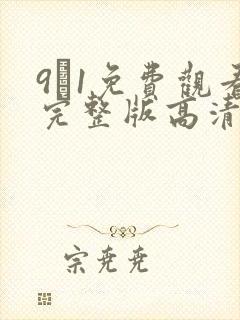 9 1免費觀看
完整版高清
宗尭尭